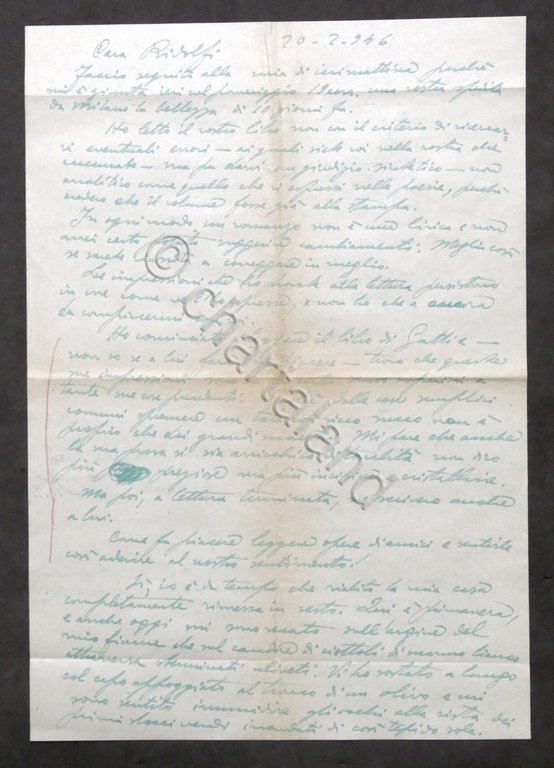 20-2-946
Cara Ridolfi
Faccio seguito alla mia di ieri mattina perchè
mi è giunta ieri nel pomeriggio una vostra spedita
da Milano la bellezza di 10 giorni fa.
Ho letto il vostro libro non con il criterio di ricerca-
re eventuali errori - ai quali siete voi nella vostra che
- ma per darvi un giudizio sintetico - non
analitico come quello che vi espressi nelle poesie, perchè
credevo che il volume fosse già alle stampe.
In ogni modo, un romanzo non è una lirica e non
sarei certo suggerire cambiamenti. Meglio così
se sarete a correggere in meglio.
Le impressioni che ho provate alla lettura persistono
in me come ve le espresse, e non ho che a ancora
da complimentarmi con voi.
Ho cominciato a leggere il libro di Gatti e -
non so se a lui farà piacere - trovo che queste
sue impressioni
tante sue cose precedenti. delle cose semplici
comuni spremere un ricco succo non è
proprio che dei grandi Mi pare che anche
la sua prosa si sia arricchita di qualità non dico
più preziose ma più cristalline.
Ma poi, a lettura terminata, scriverò anche
a lui.
Come fa piacere leggere opere di amici e sentirle
così aderire al nostro sentimento!
Sì, io è da tempo che riabito la mia casa
completamente rimessa in sesto. Qui è primavera,
e anche oggi mi sono recato sull'argine del
mio fiume che nel candore di ciottoli di marmo bianco
attraversa illuminati uliveti. Vi ho sostato a lungo
col capo appoggiato al tronco di un olivo e mi
sono sentito inumidire gli occhi alla vista dei
primi bocci verdi inondati di così tepido sole.
© chartaland